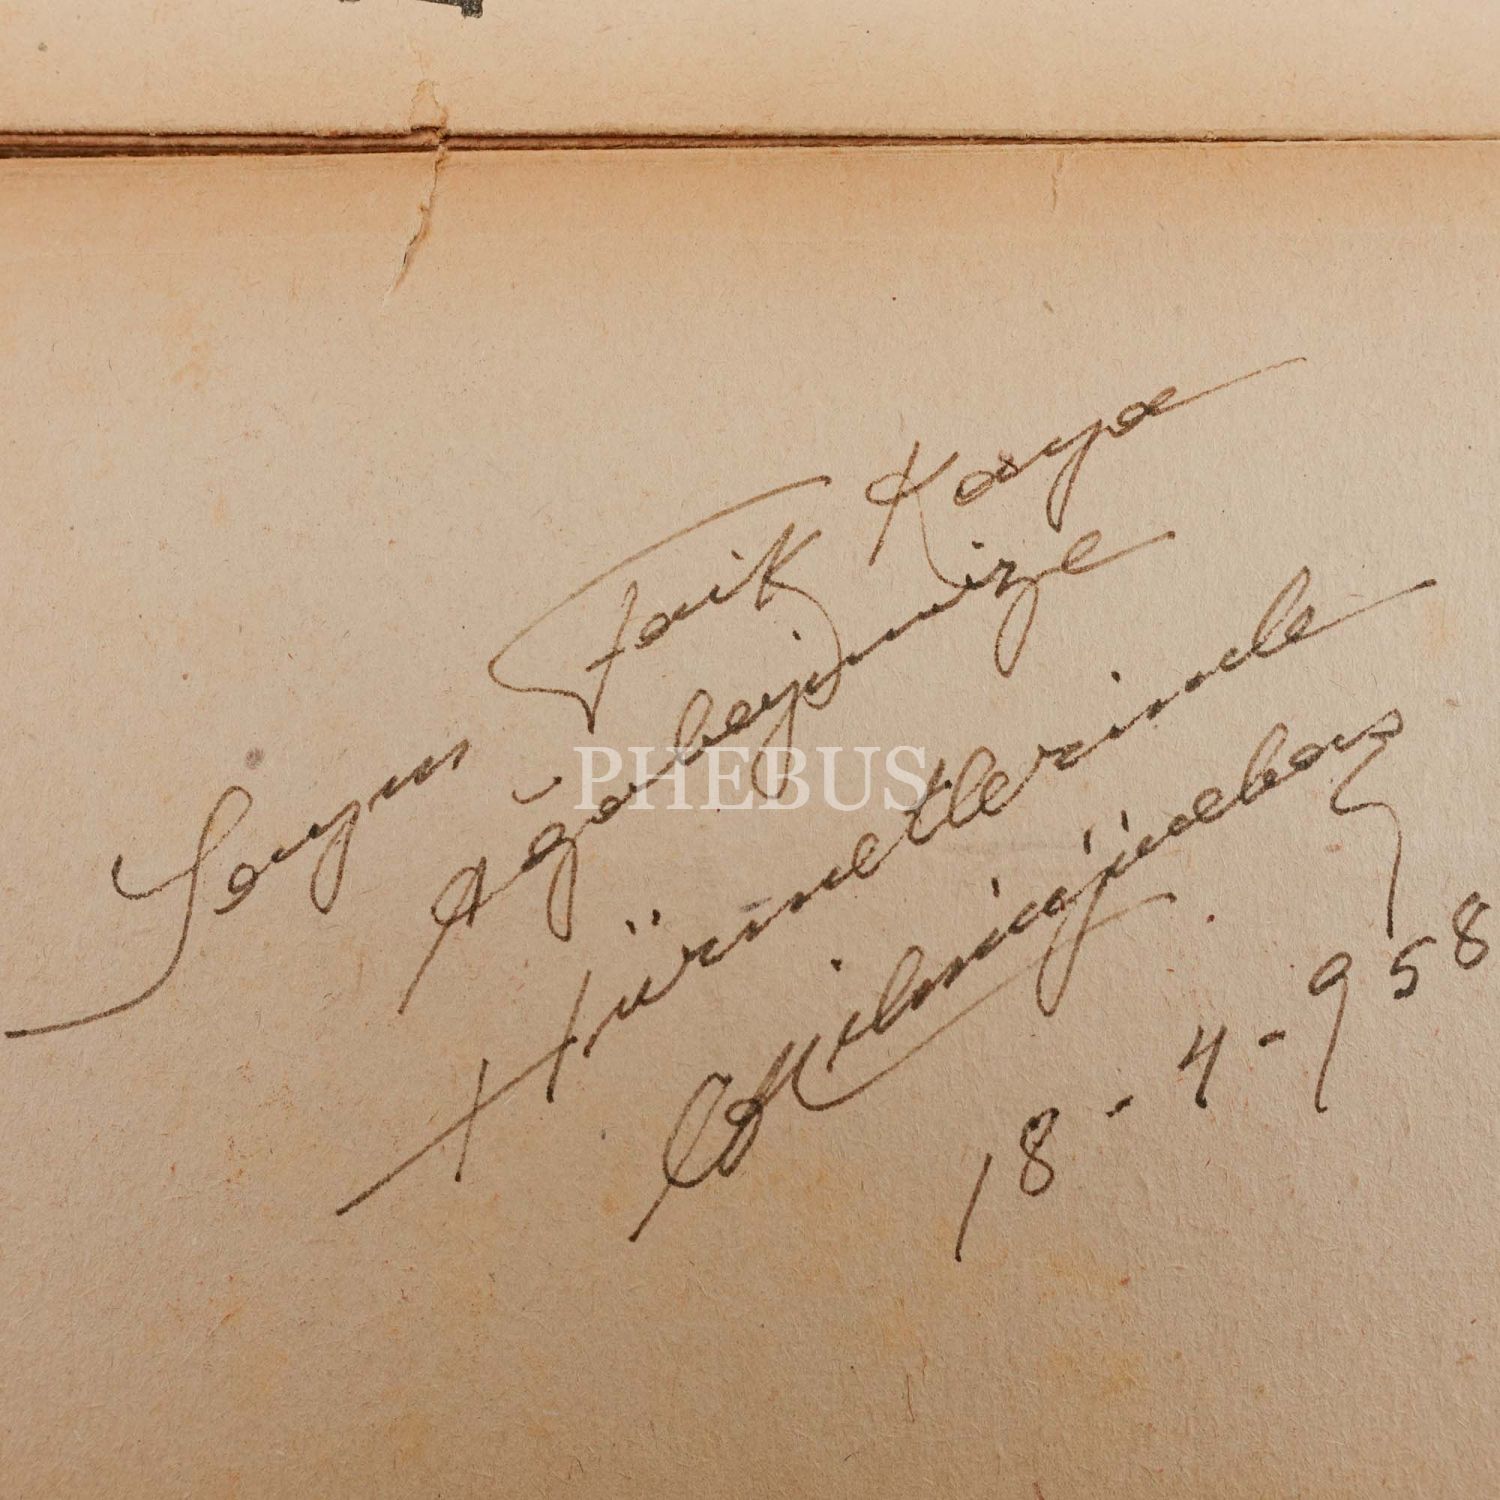 Sayın Faik Kaya
Ağabeyimize
Hürmetlerimle
18-4-958
PHEBUS